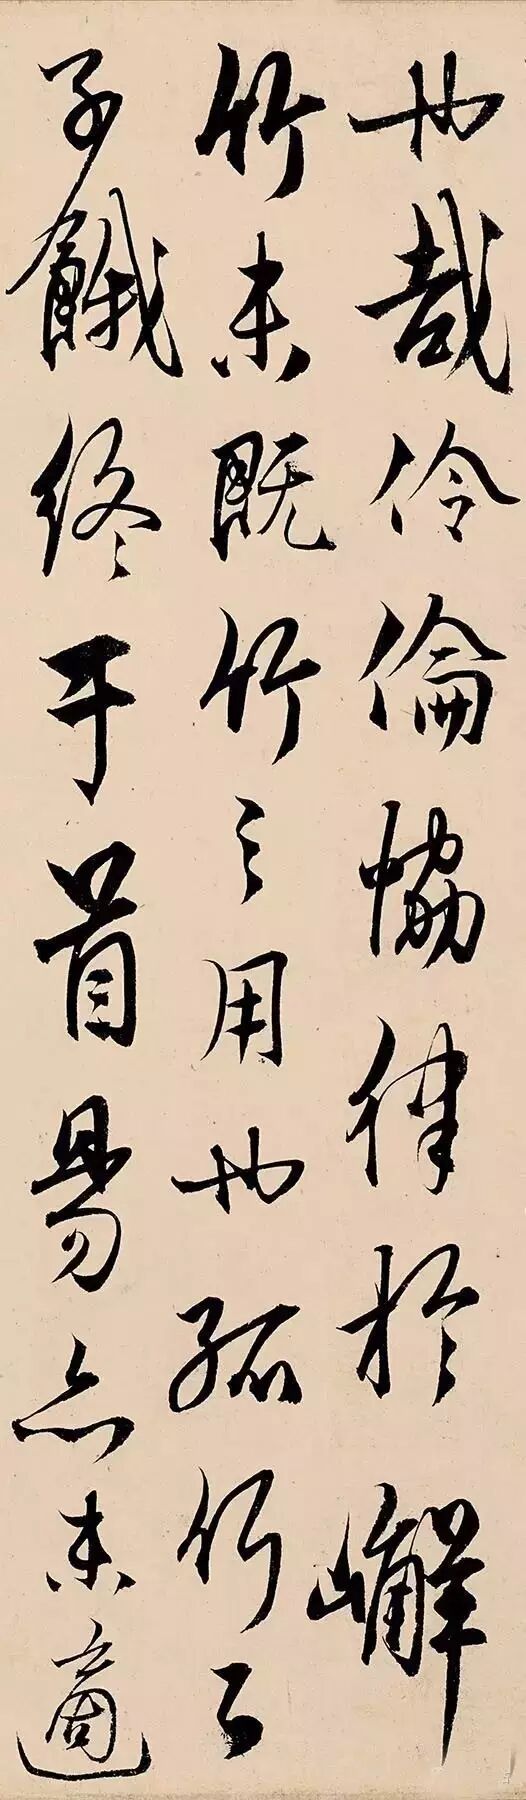 也哉伶倫協律於嶰
竹未既竹之用也孤竹之
子餓終于首昜亦未適